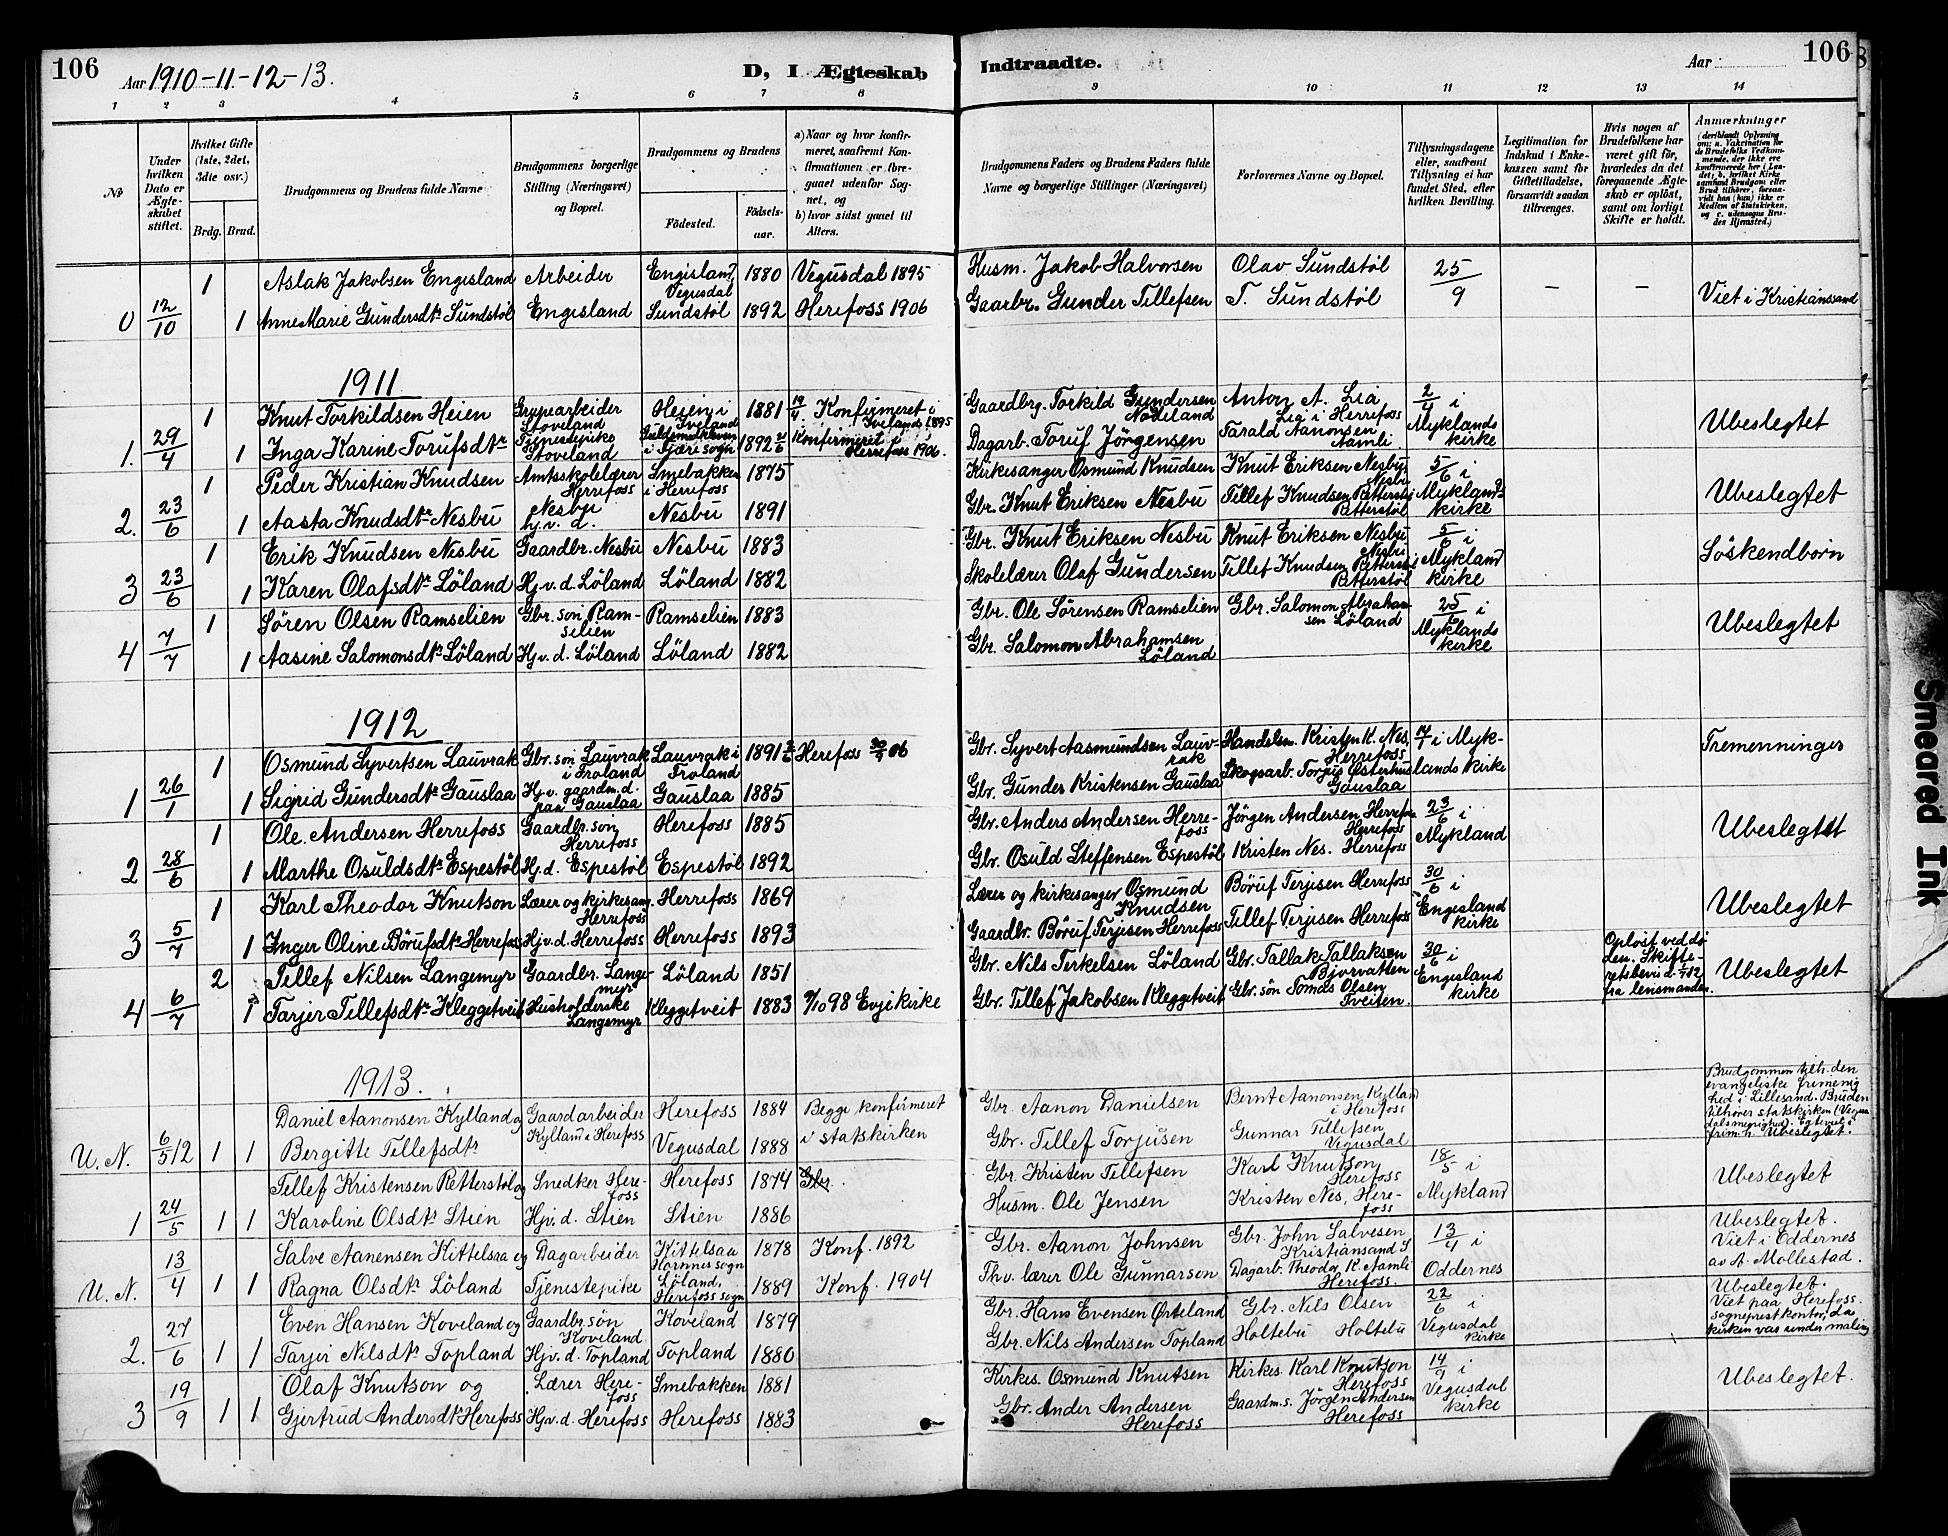 106
Aar 1910-11-12-13.
D, I Ægteskab
Indtraadte.
Aar
106
1 2 3 4 5 6 7 8 9 10 11 12 13 14
No
Under hvilken Dato er Ægteskabet stiftet.
Hvilket Gifte (1ste, 2det, 3die osv.)
Brdg. Brud.
Brudgommens og Brudens fulde Navne
Brudgommens borgerlige Stilling (Næringsvei) og Bopæl.
Brudgommens og Brudens
Fødested.
Fødselsaar.
a) Naar og hvor konfirmeret, saafremt Konfirmationen er foregaaet udenfor Sognet, og
b) hvor sidst gaaet til Alters.
Brudgommens Faders og Brudens Faders fulde Navne og borgerlige Stillinger (Næringsvei)
Forlovernes Navne og Bopæl.
Tillysningsdagene eller, saafremt Tillysning ei har fundet Sted, efter hvilken Bevilling.
Legitimation for Indskud i Enkekassen samt for Giftetilladelse, forsaavidt saadan tiltrænges.
Hvis nogen af Brudefolkene har været gift før, hvorledes da det foregaaende Ægteskab er opløst, samt om lovligt Skifte er holdt.
Anmærkninger
(deriblandt Oplysning om: a. Vaccination for de Brudefolks Vedkommende, der ikke ere konfirmerede her i Landet; b. hvilket Kirkesamfund Brudgom eller Brud tilhører, forsaavidt han (hun) ikke er Medlem af Statskirken, og c. udensogns Brudes Hjemsted.)
1 Aslak Jakobsen Engisland Arbeider Engisland, Vegusdal 1880 Vegusdal 1895 Husm. Jakob Halvorsen Olav Sundstøl 25/9 - -
0 12/10 1 Anne Marie Gundersdtr Sundstøl Engisland Sundstøl 1892 Herefoss 1906 Gaarbr. Gunder Tillefsen T. Sundstøl Viet i Kristianssand
1911
1 Knut Torkildsen Heien Grupearbeider Stoveland Heien i Iveland 1881 19/4 Konfirmeret i Ivelands 1895 Gaardbrg. Torkild Gundersen Nateland Anton A. Lia Lia i Herrefoss 2/4 i Myklands kirke Ubeslegtet
1. 29/4 1 Inga Karine Torufsdtr Tjenestepike Stoveland i Fjære sogn 1892 Konfirmeret i Herrefoss 1906. Dagarb. Toruf Jörgensen Tarald Aanonsen Aamli
1 Peder Kristian Knudsen Amtsskolelærer Herrefoss Smebakken i Herrefoss 1875 Kirkesanger Osmund Knudsen Knut Eriksen Nesbu Nesbu 5/6 i Myklands kirke Ubeslegtet
2. 23/6 1 Aasta Knudsdtr Nesbu Nesbu hj.v.d. Nesbu 1891 Gbr. Knut Eriksen Nesbu Tillef Knudsen Retterstøl Retterstøl
1 Erik Knudsen Nesbu Gaardbr. Nesbu Nesbu 1883 Gbr. Knut Eriksen Nesbu Knut Eriksen Nesbu Nesbu 5/6 i Mykland kirke Söskendbörn
3 23/6 1 Karen Olafsdtr Löland Hj.v.d. Löland Löland 1882 Skolelærer Olaf Gundersen Tillef Knudsen Retterstøl Retterstøl
1 Sören Olsen Ramselien Gbr. son Ramselien Ramselien 1883 Gbr. Ole Sörensen Ramselien Gbr. Salomon Abrahamsen Löland 25/6 i Myklands kirke Ubeslegtet
4 7/7 1 Aasine Salomonsdtr Löland Hj.v.d. Löland Löland 1882 Gbr. Salomon Abrahamsen Löland
1912
1 Osmund Syvertsen Lauvrak Gbr. son Lauvrak i Froland Lauvrak i Froland 1891 Herefoss 06 Gbr. Syvert Aasmundsen Lauvrak Handelsm. Kristen K. Nes, Herrefoss 14/1 i Myklands kirke Tremenninger
1 26/1 1 Sigrid Gundersdtr Gauslaa Hj.v. gaardm.d. paa Gauslaa Gauslaa 1885 Gbr. Gunder Kristensen Gauslaa Skogsarb. Torjus Østerhus Gauslaa
1 Ole Andersen Herrefoss Gaardbr. son Herrefoss Herefoss 1885 Gbr. Anders Andersen Herrefoss Jörgen Andersen Herrefoss Herrefoss 23/6 i Mykland Ubeslegtet
2 28/6 1 Marthe Osuldsdtr Espestöl Hj.d. Espestöl Espestöl 1892 Gbr. Osuld Steffensen Espestöl Kristen Nes. Herrefoss
1 Karl Theodor Knutson Lærer og kirkesang. Herrefoss Herrefoss 1869 Lærer og kirkesanger Osmund Knudsen Böruf Terjesen Herrefoss 30/6 i Engesland kirke Ubeslegtet
3 5/7 1 Inger Oline Börufsdtr Herrefoss Hj.v.d. Herrefoss Herrefoss 1893 Gaardbr. Böruf Terjesen Herrefoss Tillef Terjesen Herrefoss
2 Tillef Nilsen Langemyr Gaardbr. Langemyr Löland 1851 Gbr. Nils Terkelsen Löland Gbr. Tallak Tallaksen Bjorvatten 30/6 i Engesland kirke Opløst ved döden. Skifteretsbevis d. fra lensmanden. Ubeslegtet
4 6/7 1 Tarjer Tillefsdtr Kleggetveit Husholderske Langemyr Kleggetveit 1883 9/10 98 Evje kirke Gbr. Tillef Jakobsen Kleggetveit Gbr. sön Tomas Olsen Tveiten.
1913.
Daniel Aanonsen Kylland og Gaardarbeider Kylland i Herefoss Herefoss 1884 Begge konfirmeret i statskirken Gbr. Aanon Danielsen Bernt Aanonsen Kylland i Herefoss Brudgommen tilh. den evangeliske frimenighed i Lillesand. Bruden tilhører statskirken (Vegusdals menighed). Egteviet i frim.h. Ubeslegtet.
U. N. 6/5 12 1 1 Bergitte Tillefsdtr Vegusdal 1888 Gbr. Tillef Torjusen Gunnar Tillefsen Vegusdal
Tellef Kristensen Retterstøl og Snedker Herefoss Herefoss 1874 Gbr. Gbr. Kristen Tillefsen Karl Knutson, Herefoss 18/5 i Mykland Ubeslegtet
1 24/5 1 1 Karoline Olsdtr Stien Hjv.d. Stien Stien 1886 Husm. Ole Jensen Kristen Nes, Herefoss
Salve Aanensen Kittelsaa og Dagarbeider Kittelsaa Hornnes sogn 1878 Konf. 1892 Gbr. Aanon Johnsen Gbr. John Salvesen, Kristiansand S 13/4 i Oddernes Ubeslegtet. Viet i Oddernes av A. Mollestad.
U. N. 13/4 1 1 Ragna Olsdtr Löland Tjenestepike Löland, Herefoss sogn 1889 Konf. 1904 Thv. lærer Ole Gunnarson Dagarb. Theodor K. Aamli Herefoss
Even Hansen Koveland og Gaardbr. søn Koveland Koveland 1879 Gbr. Hans Evensen Ørteland Gbr. Nils Olsen Holtebu Holtebu 22/6 i Vegusdal kirke Ubeslegtet. Viet paa Herefoss. Sogneprestkontor, da kirken var under maling
2. 27/6 1 1 Tarjer Nilsdtr Topland Hjv.d. Topland Topland 1880 Gbr. Nils Andersen Topland
Olaf Knutson og Lærer Herefoss Smebakken 1881 Kirkes. Osmund Knutsen Kirkes. Karl Knutson Herefoss 14/9 i Vegusdal kirke Ubeslegtet.
3 19/9 1 1 Gjertrud Andersdtr Herefoss Hjv.d. Herefoss Herefoss 1883 Gbr. Ander Andersen Herefoss Gaardm.s. Jörgen Andersen Herefoss
Smeared Ink